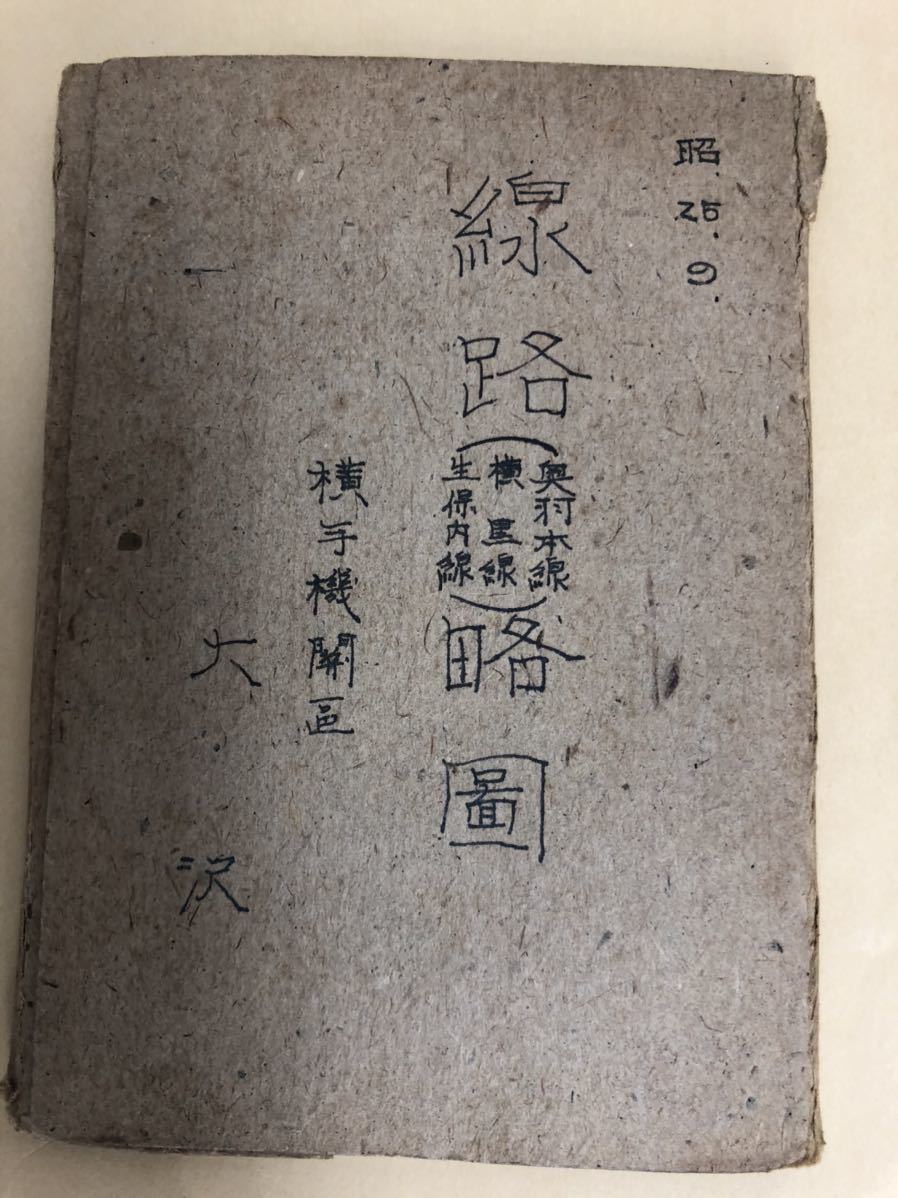 昭.25.9.
線路(奥羽本線
横黒線
生保内線)略圖
横手機関區
大沢